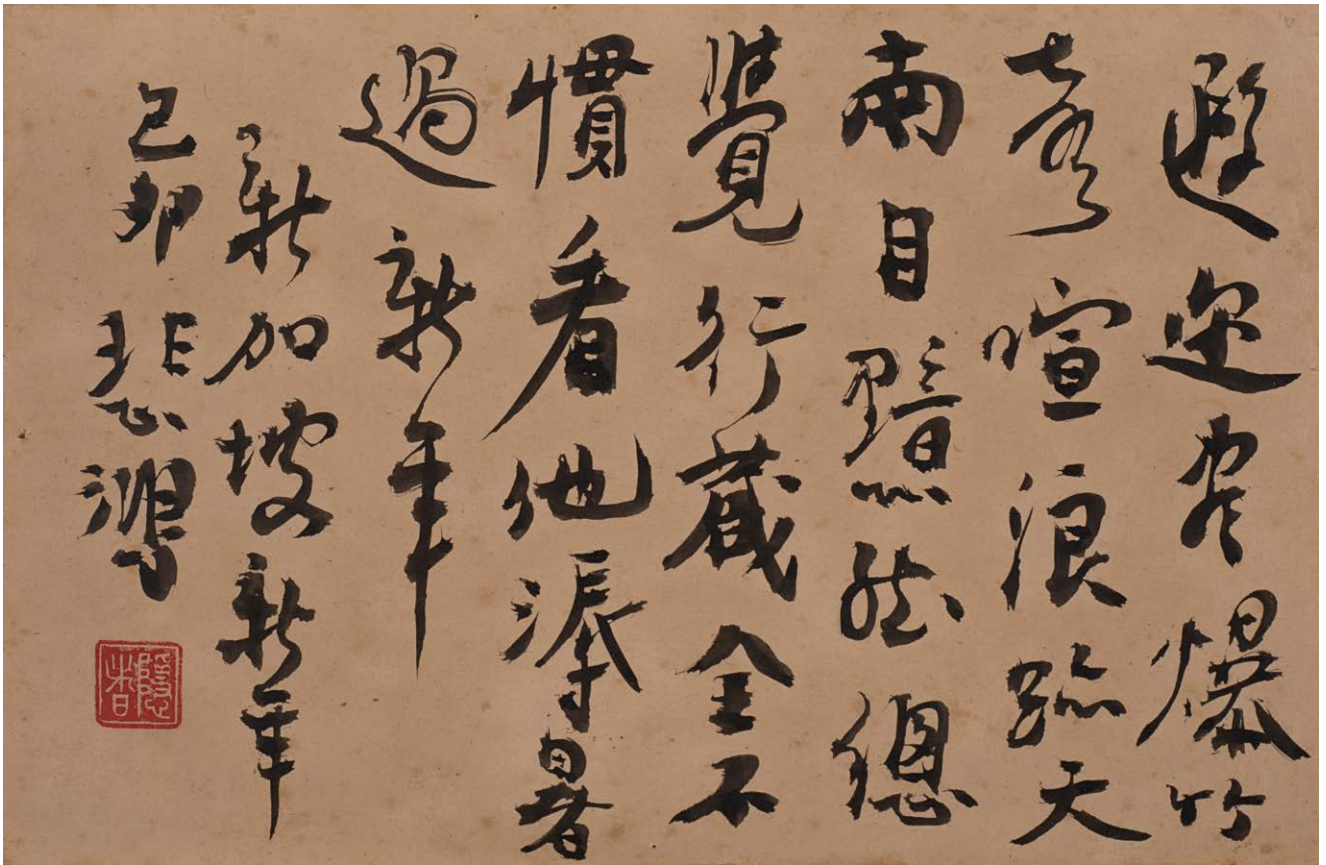 遐迩爆竹
聲喧浪跡天
南目黯然總
覺行藏全不
慣看他溽暑
過新年
新加坡新年
己卯悲鴻